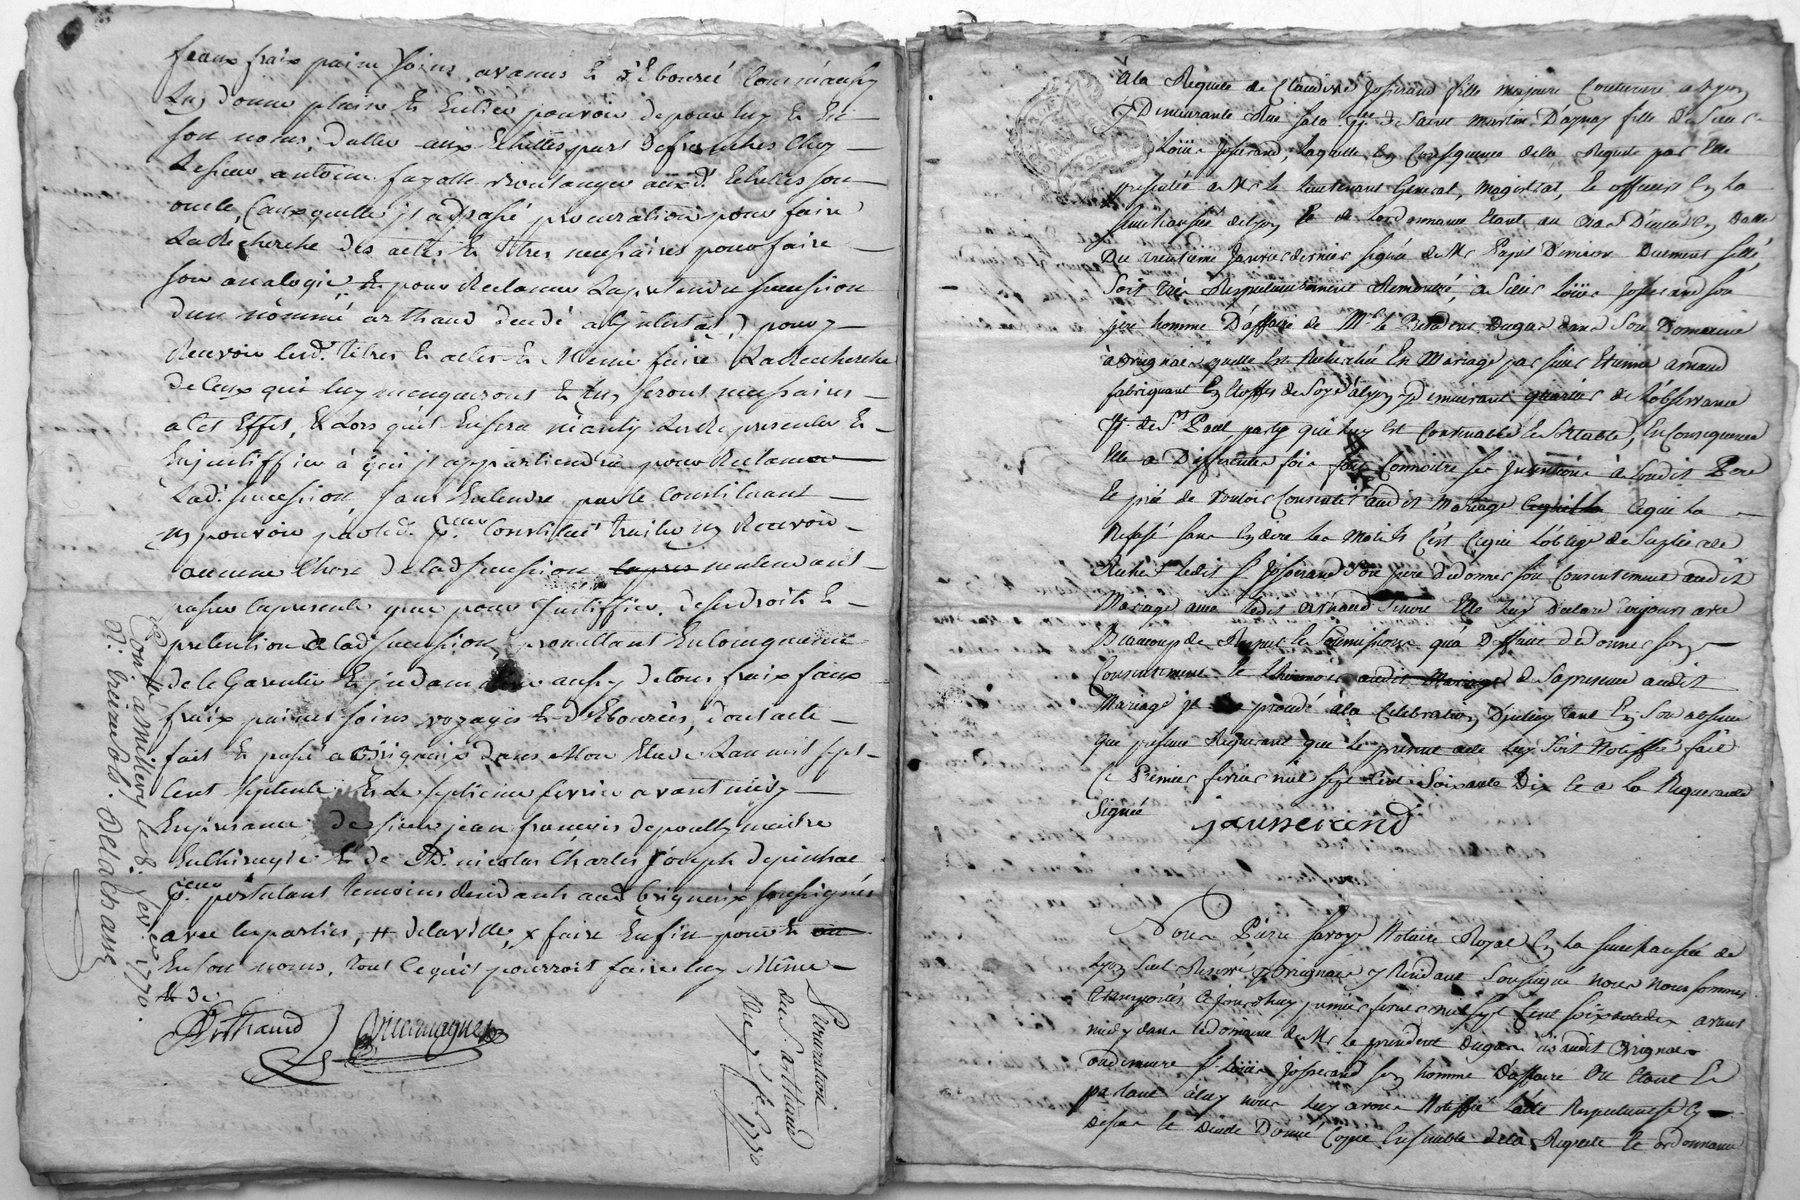 feaux fraix paine soins avances et d'Ebourcé Comme aussy
Luy donne plein et Entier pouvoir de pour luy et En
son noms, d'aller aux Echelles part de frances Chez
Le sieur antoine fayolle Boulanger aux d. Echelles son
oncle, auxquelle il a passé procuration pour faire
La Recherche des actes et titres necessaires pour faire
son analogie et pour Reclamer La pretendu sucession
d'un nommé arthaud decedé pour
Recevoir lesd. titres et actes et Meme faire La Recherche
de Ceux qui luy manqueront et luy seront necessaires
a Cet Effet, & Lors qu'il En sera nanty Les Representer et
En justiffier à qui il appartiendra pour Reclamer
Lad. sucession, sans Entendre par le Constituant
pouvoir par led. pr. Constitué traiter ny Recevoir
aucune Chose de lad. sucession n'entendant
passer la presente que pour justiffier de ses droits et
pretention a lad. sucession, promettant En Consequence
de le Garentir Et indamniser aussy de tous fraix faux
fraix paines soins voyages et d'Ebourcés, dont acte
fait et passé a Brignaix dans Mon Etude L'an mil sept
Cent septente et Le septieme fevrier avant midy
En presance de sieur jean francois depoully maitre
En Chirurgie et de Sr. nicolas Charles joseph depinhac
pr. postulant temoins Residants aud. Brignaix soussignés
avec les parties, # de la ville, x faire Enfin pour et
En son noms, tout Ce qu'il pourroit faire luy Même
et de
Arthaud
Con. a Millery le 8. fevrier 1770.
R. treize sols. Delachasse
Procuration
du S. arthaud
Du 7 f. 1770
A la Requete de Claudine Josserand fille majeure Couturiere a Lyon
y Demeurante Rue Sala psse. de Saint Martin D'aynay fille de Sieur
Loüis Josserand, Laquelle En Consequence de la Requete par Elle
presentée a Mr. le Lieutenant General, Magistrat, et officiers En La
Senechaussée de Lyon Et de L'ordonnance Etant au bas D'icelle En Datte
Du trentieme Janvier dernier signée de Mr. Duement sellé
Soit tres Respectueusement Remontré, a Sieur Loüis Josserand son
pere homme D'affaire de Mr. le President Dugas dans son Domaine
a Brignais, qu'elle Est Recherchée En Mariage par sieur Etienne arnaud
fabriquant En Etoffes de Soye à Lyon y Demeurant quartier de L'observance
psse de St. Paul party qui Luy Est Convenable Et Sortable, En Consequence
Elle a Differentes fois fait Connoitre ses Intentions à Sondit Pere
Et prié de Vouloir Consentir audit Mariage Ce qui La
Refusé sans En dire les Motifs C'est Ce qui L'oblige de Suplier de
Rechef Ledit S. Josserand son pere De donner son Consentement audit
Mariage avec Ledit arnaud Sinon Elle Luy Declare toujours avec
Beaucoup de Respect Et Soumissions qu'a Deffaut De donner son
Consentement Et audit Mariage de Sa presence audit
Mariage il procedé à la Celebration D'iceluy tant En Son absence
que presence Requerant que Le present acte Luy soit Notiffié fait
Ce Premier fevrier mil sept Cent Soixante Dix Et a la Requerante
Signée jausserand
Nous Pierre Savoye Notaire Royal En La Senechaussée de
Lyon Seul Reservé pr Brignais y Residant soussigné Nous Nous sommes
transportés Ce jourd'huy premier fevrier mil sept Cent soixante dix avant
midy dans le domaine de Mr. le president Dugas sis audit Brignais
ou demeure S. Loüis Josserand son homme D'affaire Ou Etant Et
parlant à Luy nous Luy avons Notiffié Lacte Respectueux Cy
dessus Et De de Donné Copie Ensemble de la Requete Et ordonnance